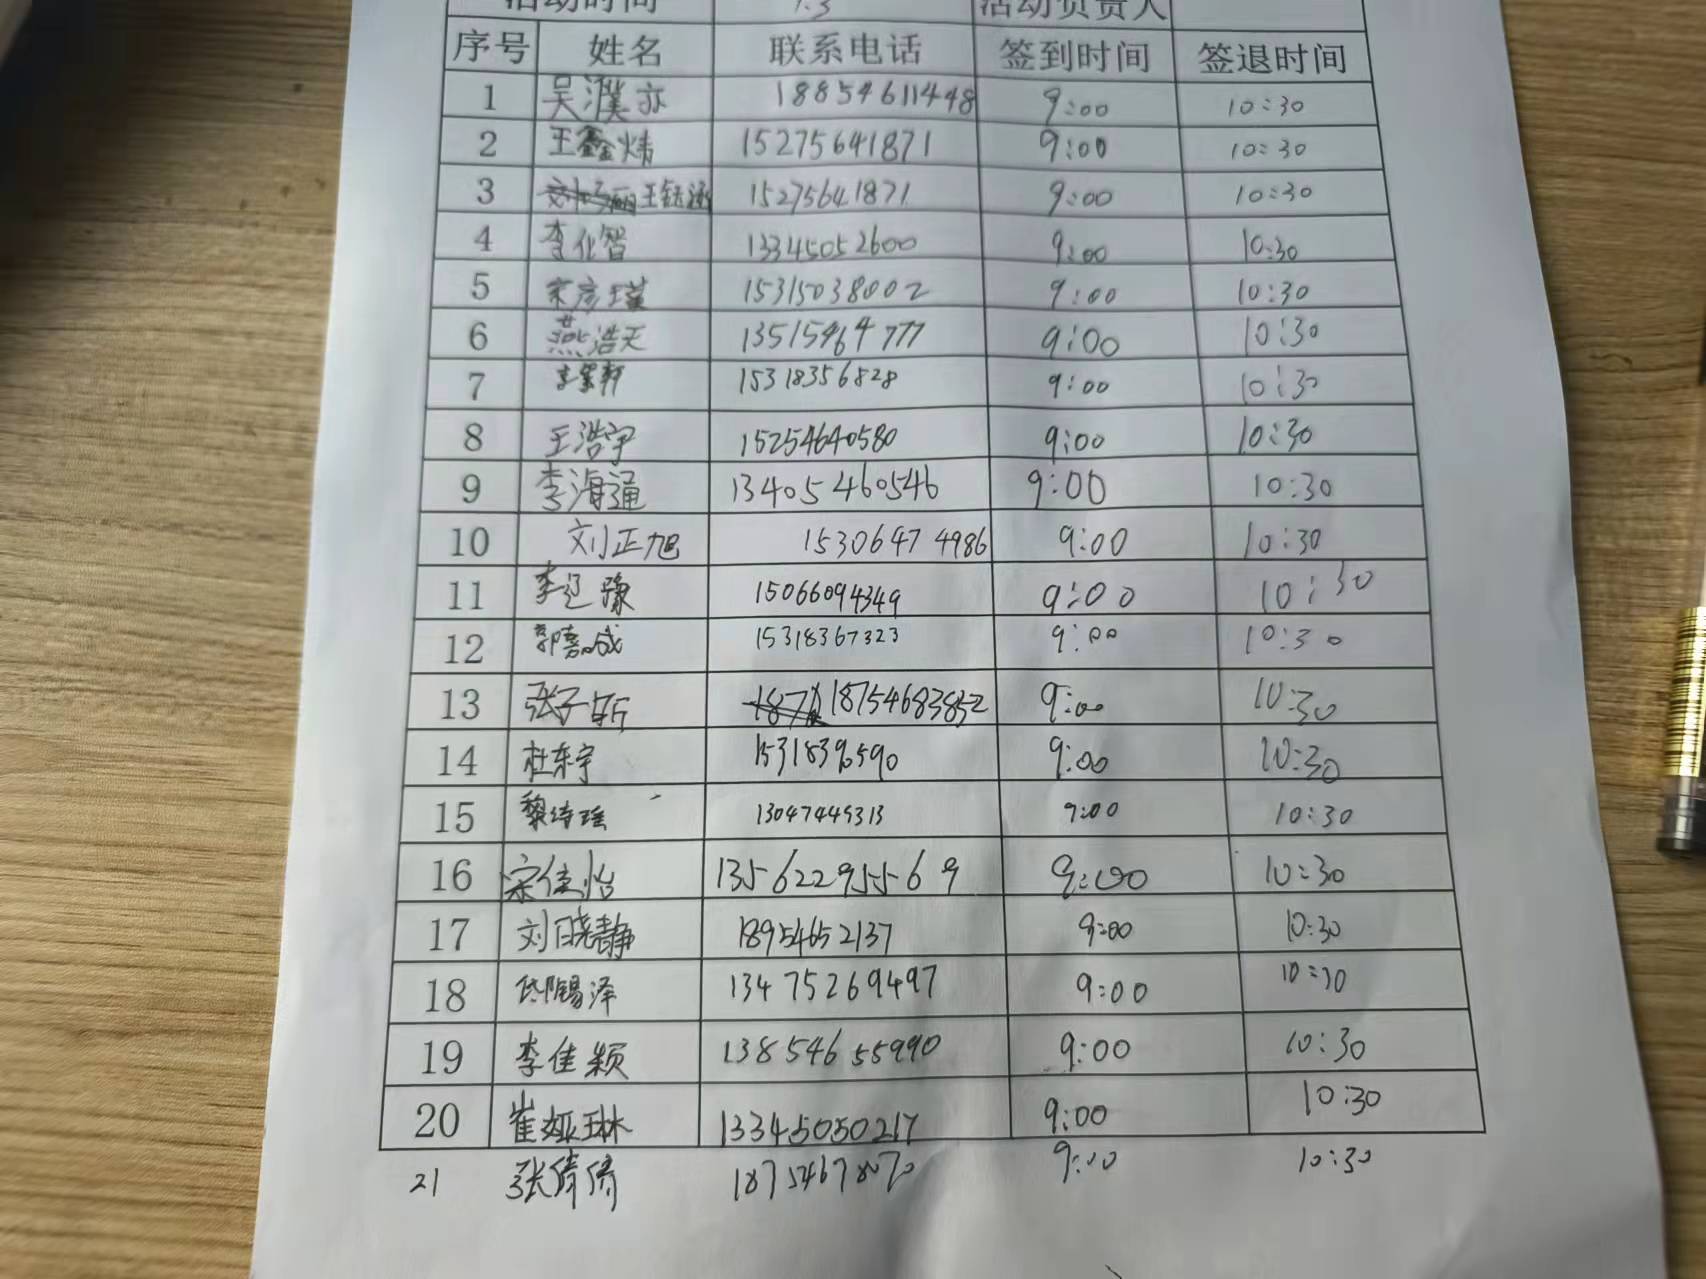 活动时间 1.3 活动负责人
序号 姓名 联系电话 签到时间 签退时间
1 吴濮亦 18854611448 9:00 10:30
2 王鑫炜 15275641871 9:00 10:30
3 王钰涵 15275641871 9:00 10:30
4 李化智 13345052600 9:00 10:30
5 宋彦瑾 15315038002 9:00 10:30
6 燕浩天 13515464777 9:00 10:30
7 15318356828 9:00 10:30
8 王浩宇 15254640580 9:00 10:30
9 李海通 13405460546 9:00 10:30
10 刘正旭 15306474986 9:00 10:30
11 李迎豫 15066094349 9:00 10:30
12 郭嘉成 15318367323 9:00 10:30
13 张子昕 18754683852 9:00 10:30
14 杜东宇 9:00 10:30
15 黎诗瑶 13047445313 9:00 10:30
16 宋佳怡 13562295569 9:00 10:30
17 刘晓静 18954652137 9:00 10:30
18 锡泽 13475269497 9:00 10:30
19 李佳颖 13854655990 9:00 10:30
20 崔娅琳 13345050217 9:00 10:30
21 张倩倩 18754678070 9:00 10:30